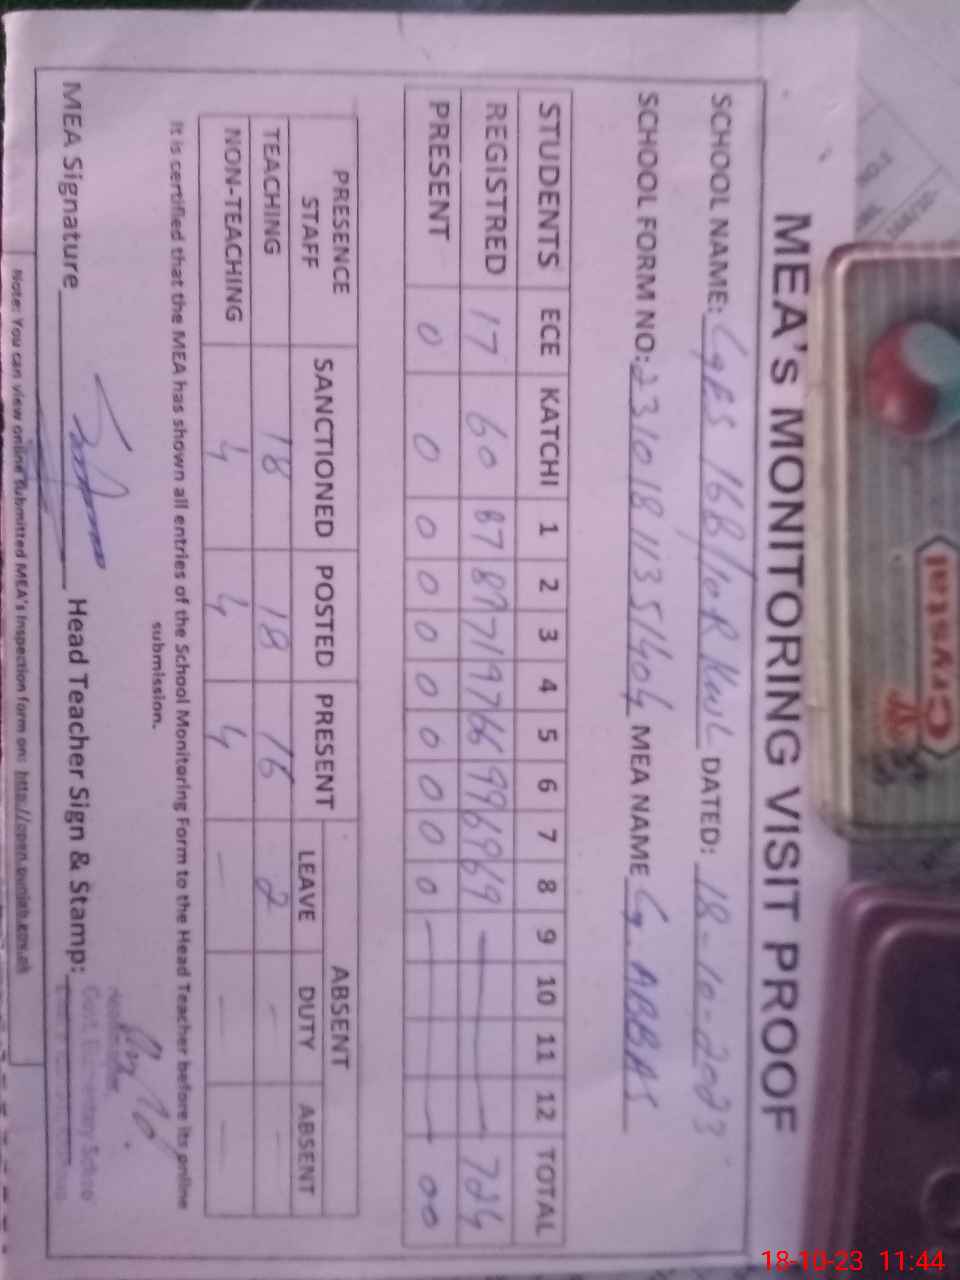 MEA's MONITORING VISIT PROOF
SCHOOL NAME: GgES 168/10R KWL DATED: 18-10-2023
SCHOOL FORM NO: 23101811351404 MEA NAME G. ABBAS
STUDENTS ECE KATCHI 1 2 3 4 5 6 7 8 9 10 11 12 TOTAL
REGISTRED 17 60 87 89 71 97 66 99 69 69 — 724
PRESENT 0 0 0 0 0 0 0 0 0 0 — 00
PRESENCE STAFF SANCTIONED POSTED PRESENT ABSENT
LEAVE DUTY ABSENT
TEACHING 18 18 16 2 - -
NON-TEACHING 4 4 4 - - -
It is certified that the MEA has shown all entries of the School Monitoring Form to the Head Teacher before its online
submission.
MEA Signature Head Teacher Sign & Stamp:
Govt. Elementary School
Note: You can view online submitted MEA's Inspection form on: http://open.punjab.gov.pk
Crystal
18-10-23 11:44